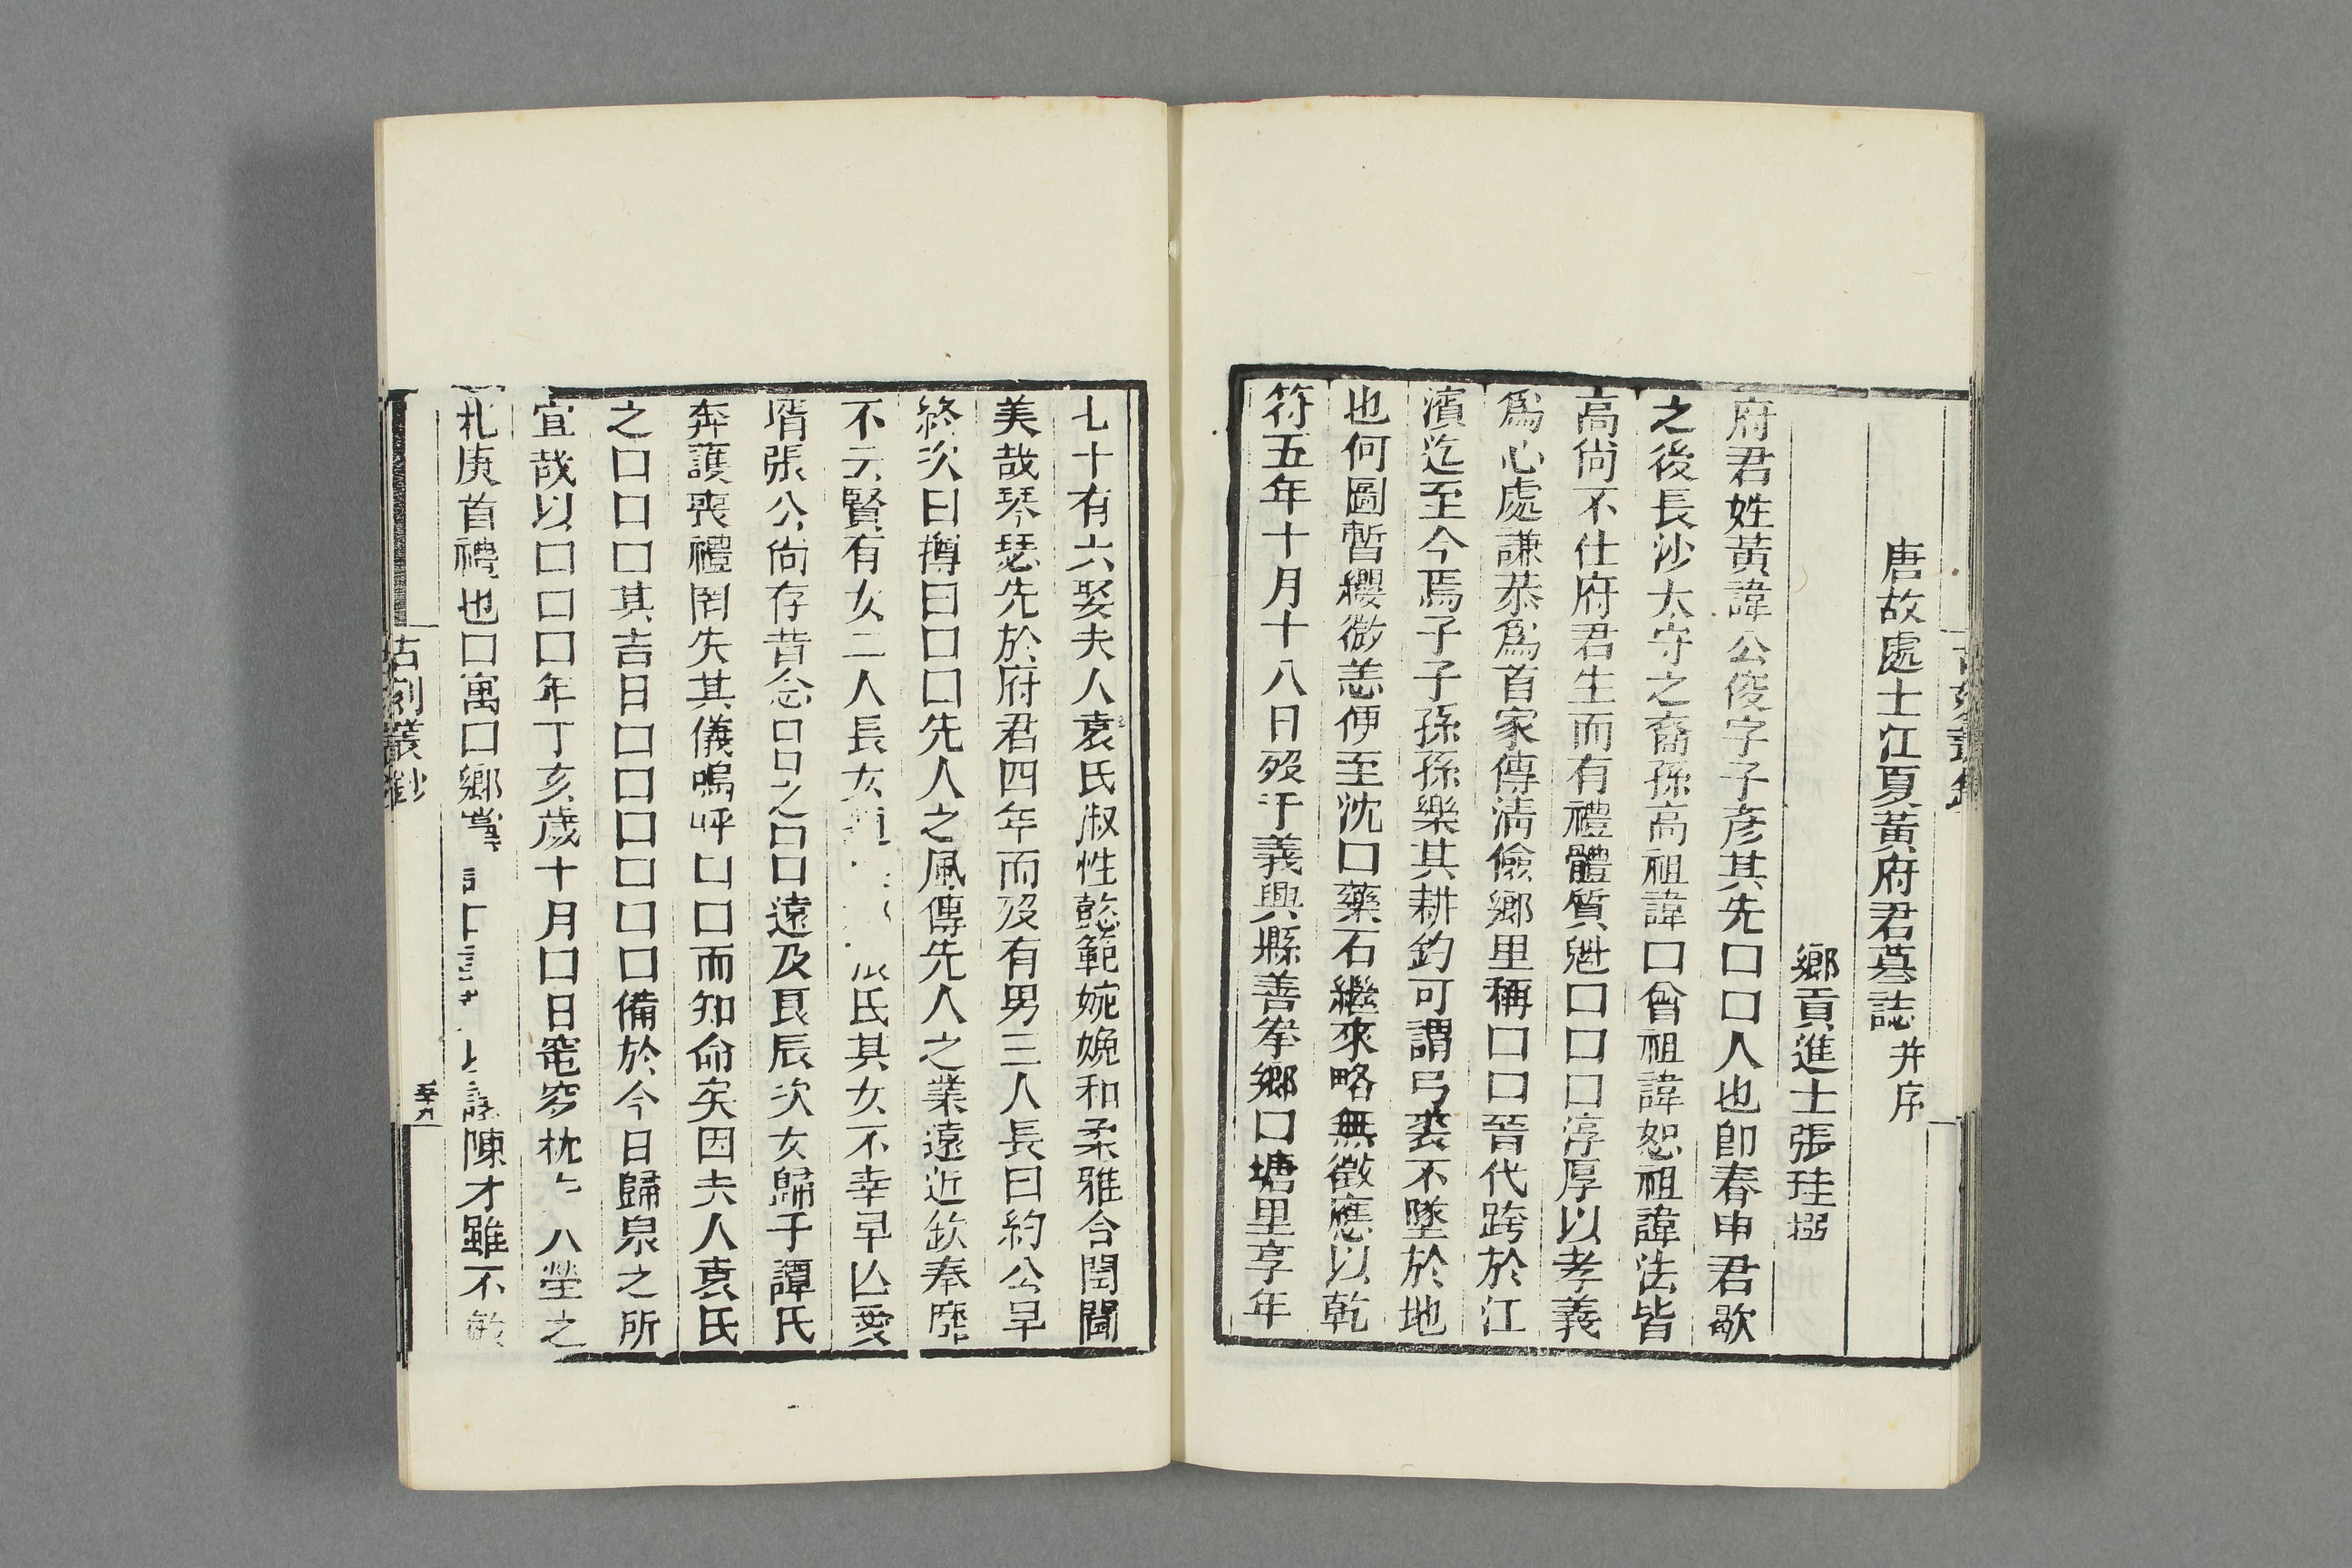 唐故處士江夏黃府君墓誌并序
鄉貢進士張珪撰
府君姓黃諱公俊字子彥其先口口人也卽春申君歇
之後長沙太守之裔孫高祖諱口曾祖諱恕祖諱法皆
高尚不仕府君生而有禮體質魁口口口淳厚以孝義
爲心處謙恭爲首家傳淸儉鄉里稱口口晉代跨於江
濱迄至今焉子子孫孫樂其耕釣可謂弓裘不墜於地
也何圖暫纓微恙便至沈口藥石繼來略無徵應以乾
符五年十月十八日歿于義興縣善拳鄉口塘里享年
七十有六娶夫人袁氏淑性懿範婉娩和柔雅合閨閫
美哉琴瑟先於府君四年而歿有男三人長曰約公早
終次曰摶曰口口先人之風傳先人之業遠近欽奉靡
不云賢有女二人長女 氏其女不幸早亾愛
壻張公尙存昔念口口之口口遠及艮辰次女歸于譚氏
奔護喪禮罔失其儀嗚呼口口而知命矣因夫人袁氏
之口口口其吉日口口口口口口備於今日歸泉之所
宜哉以口口口年丁亥歲十月口日窀穸枕 八塋之
札庚首禮也口寓口鄉黨 口 陳才雖不敏
古刻叢鈔
五十九